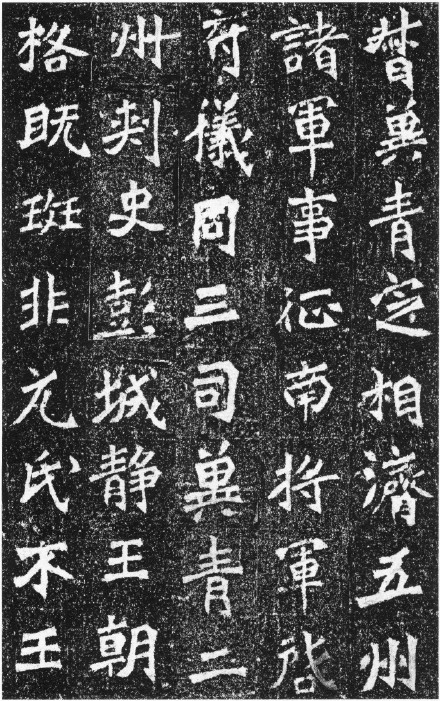 督冀青定相濟五州
諸軍事征南將軍啓
府儀同三司冀青二
州刾史彭城静王朝
格既班非元氏不王